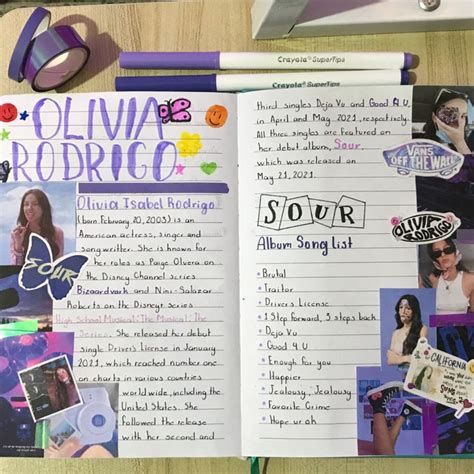 Crayola SuperTips
Crayola SuperTips
OLIVIA
RODRIGO
Olivia Isabel Rodrigo
(born February 20, 2003) is an
American actress, singer and
songwriter. She is known for
her roles as Paige Olvera on
the Disney Channel series
Bizaardvark and Nini Salazar
Roberts on the Disney+ series
High School Musical: The Musical: The
Series. She released her debut
single Drivers License in January
2021, which reached number one
on charts in various countries
world wide, including the
United States. She
followed the release
with her second and
SOUR
third singles Deja Vu and Good 4 U,
in April and May 2021, respectively.
All three singles are featured on
her debut album, Sour,
which was released on
May 21, 2021.
SOUR
Album Song List
Brutal
Traitor
Drivers License
1 Step forward, 3 steps back
Deja Vu
Good 4 U
Enough for you
Happier
Jealousy, Jealousy
Favorite Crime
Hope ur ok
VANS
OFF THE WALL
OLIVIA
RODRIGO
CALIFORNIA